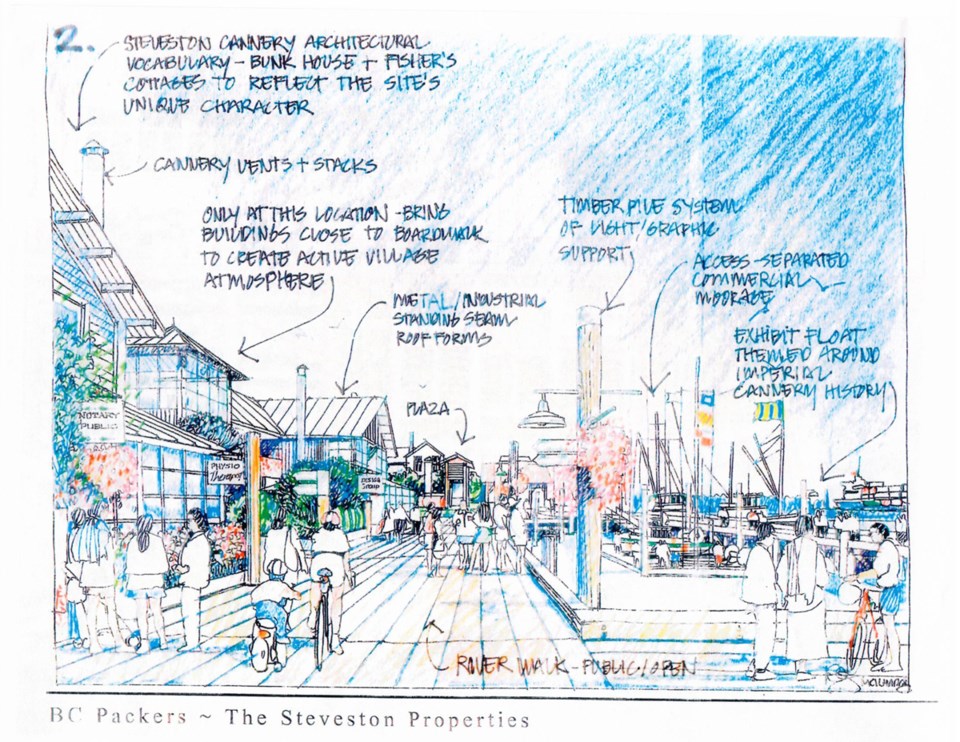 2.
STEVESTON CANNERY ARCHITECTURAL
VOCABULARY - BUNK HOUSE + FISHER'S
COTTAGES TO REFLECT THE SITE'S
UNIQUE CHARACTER
CANNERY VENTS + STACKS
ONLY AT THIS LOCATION - BRING
BUILDINGS CLOSE TO BOARDWALK
TO CREATE ACTIVE VILLAGE
ATMOSPHERE
TIMBER PILE SYSTEM
OF LIGHT/GRAPHIC
SUPPORT
ACCESS-SEPARATED
COMMERCIAL
MOORAGE
METAL/INDUSTRIAL
STANDING SEAM
ROOF FORMS
EXHIBIT FLOAT
THEMED AROUND
IMPERIAL
CANNERY HISTORY
PLAZA
NOTARY
PUBLIC
PHYSIO
Therapist
RIVER WALK - PUBLIC/OPEN
BC Packers ~ The Steveston Properties